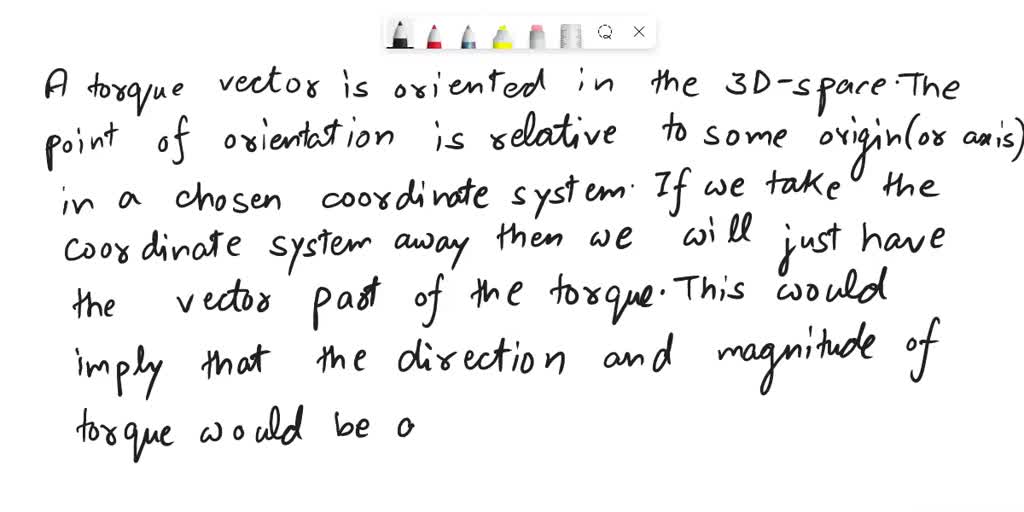 A torque vector is oriented in the 3D-space. The
point of orientation is relative to some origin(or axis)
in a chosen coordinate system. If we take the
coordinate system away then we will just have
the vector part of the torque. This would
imply that the direction and magnitude of
torque would be a